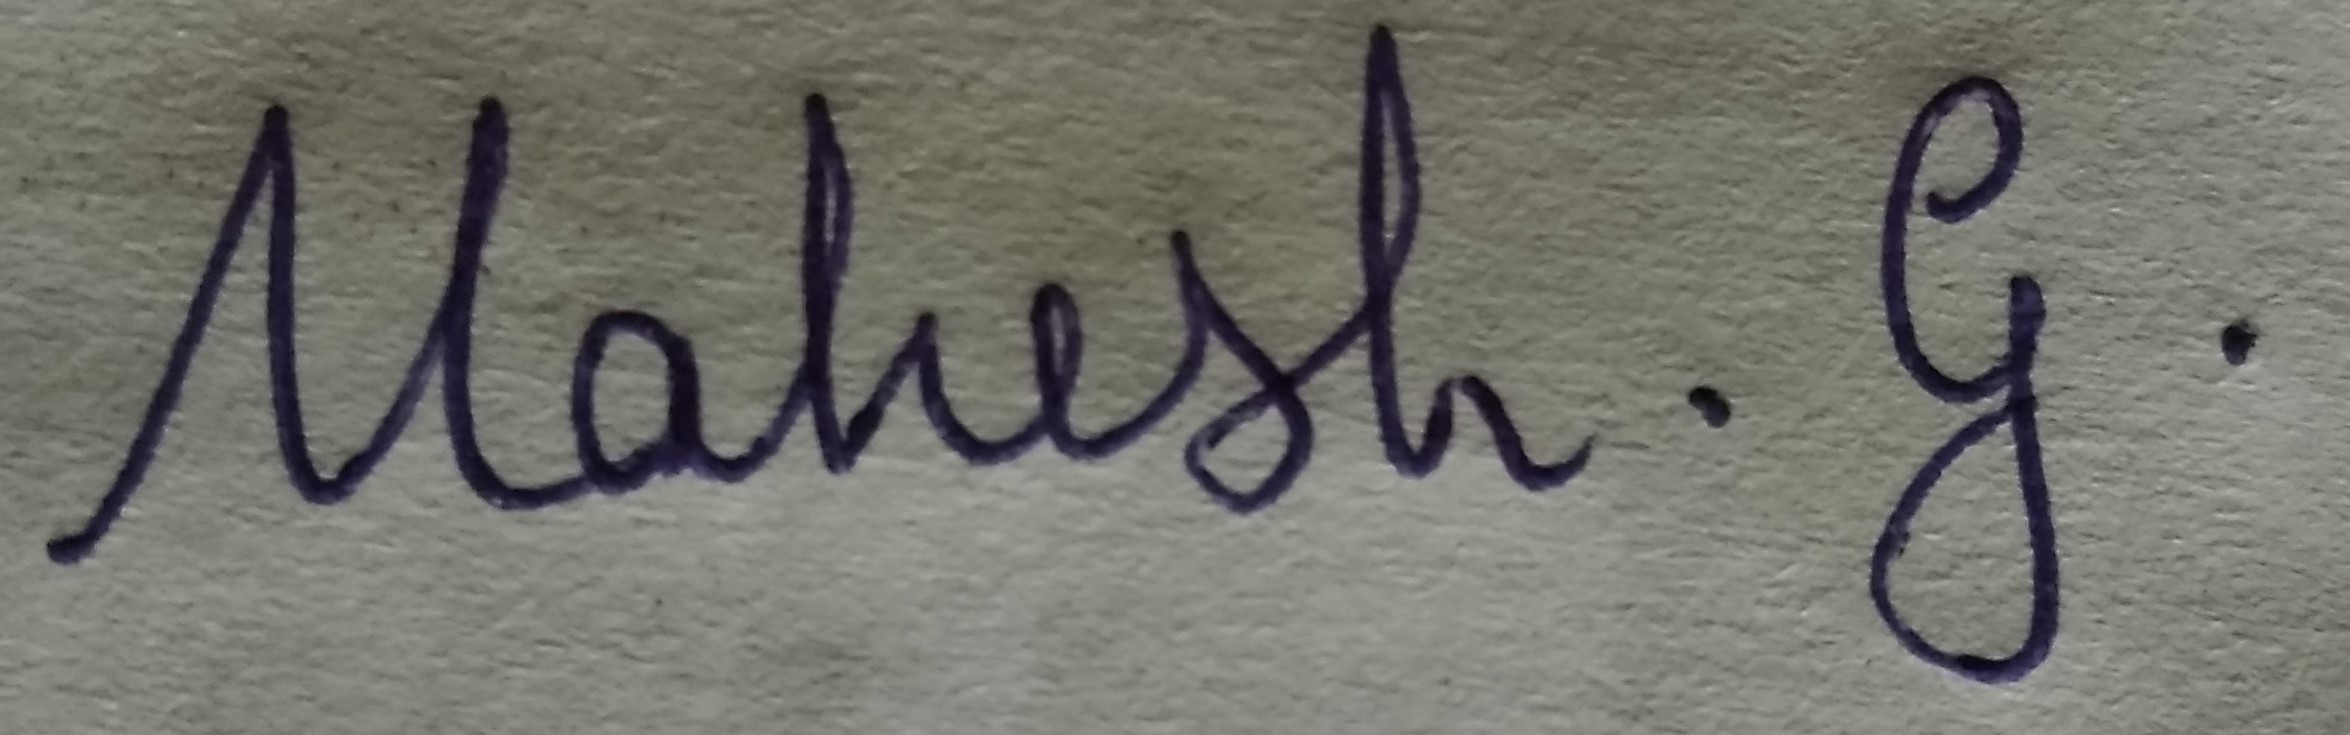 Mahesh. G.